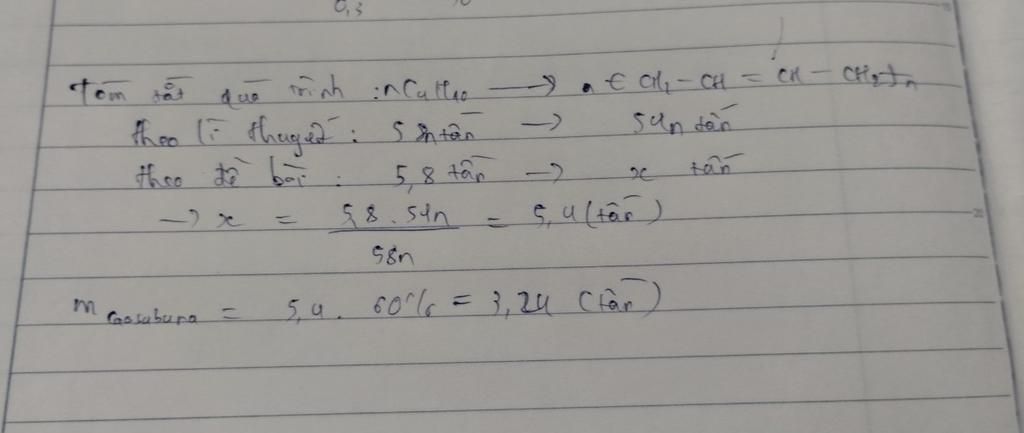 0,3
Tóm tắt quá trình : nC4H10 → n ( CH2 - CH = CH - CH2 )n
theo lí thuyết : 58n tấn → 54n tấn
theo đề bài : 5,8 tấn → x tấn
→ x = 5,8 . 54n / 58n = 5,4 (tấn)
m caosubuna = 5,4 . 60% = 3,24 (tấn)